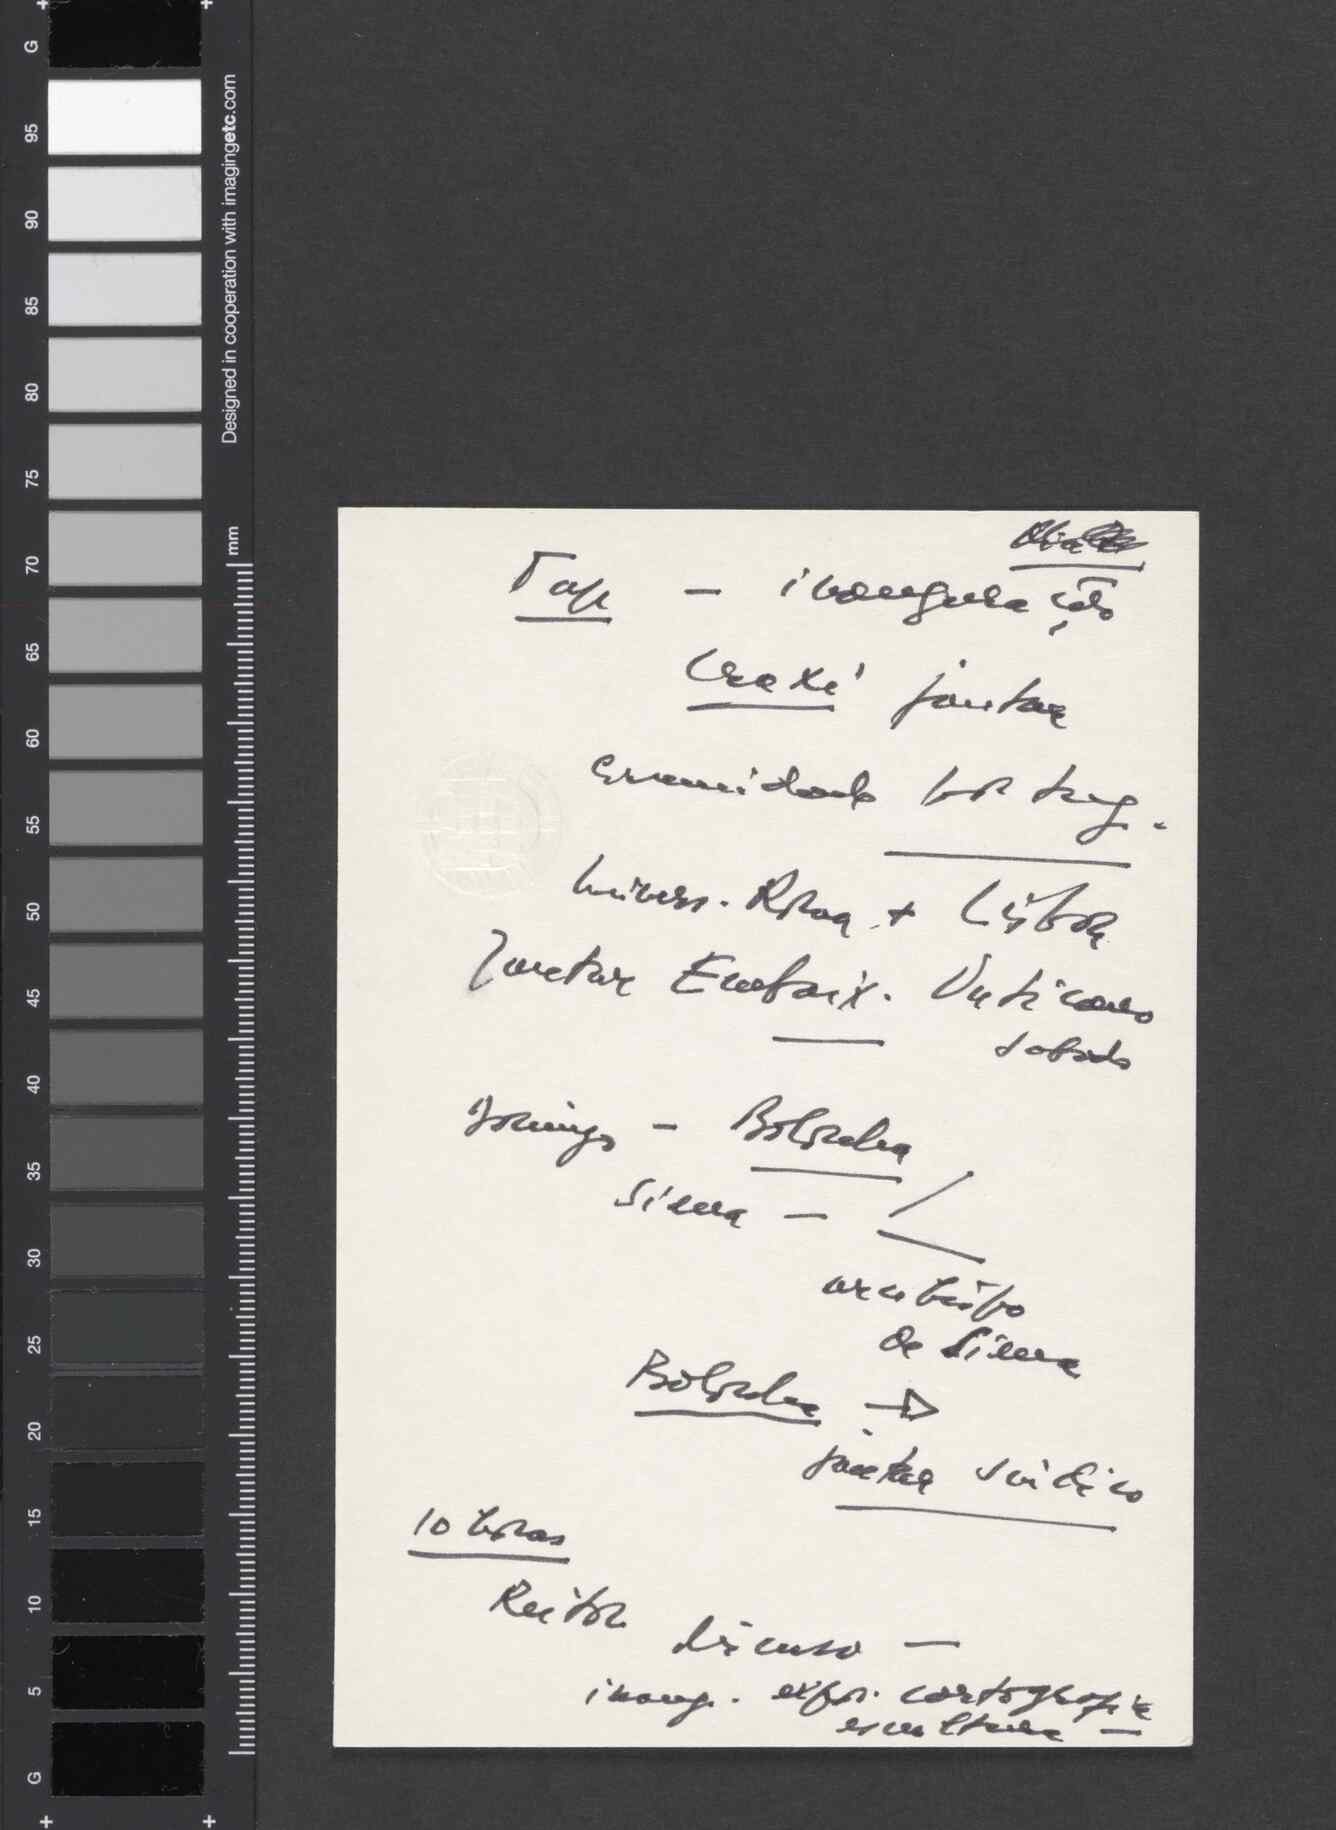 Tap — inauguração
Craxi jantar
Comunidade portug.
Univers. Roma + Lisboa
Jantar Embaix. Vaticano
sabado
Domingo — Bolonha
Siena —
arcebispo
de Siena
Bolonha →
jantar Suíço
10 horas
Reitor
discurso —
inaug. expos. cartografia
escultura —
G
95
90
85
80
75
70
65
60
55
50
45
40
35
30
25
20
15
10
5
G
Designed in cooperation with imagingetc.com
mm